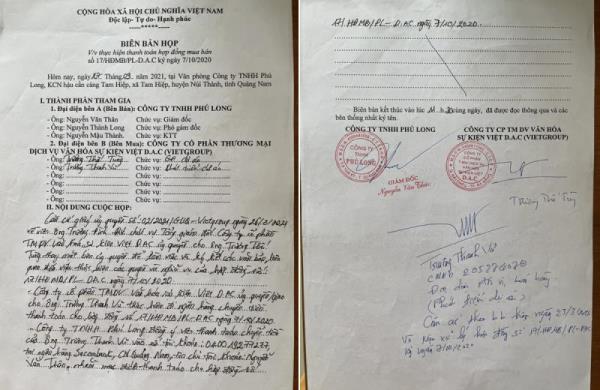 CỘNG HÒA XÃ HỘI CHỦ NGHĨA VIỆT NAM
Độc lập- Tự do- Hạnh phúc
-----*****-----
BIÊN BẢN HỌP
V/v thực hiện thanh toán hợp đồng mua bán
số 17/HĐMB/PL-D.A.C ký ngày 7/10/2020
Hôm nay, ngày 27 tháng 03 năm 2021, tại Văn phòng Công ty TNHH Phú
Long, KCN hậu cần cảng Tam Hiệp, xã Tam Hiệp, huyện Núi Thành, tỉnh Quảng Nam
I. THÀNH PHẦN THAM GIA
1. Đại diện bên A (Bên Bán): CÔNG TY TNHH PHÚ LONG
- Ông: Nguyễn Văn Thân Chức vụ: Giám đốc
- Ông: Nguyễn Thành Long Chức vụ: Phó giám đốc
- Ông: Nguyễn Mậu Thành. Chức vụ: KTT
2. Đại diện bên B (Bên Mua): CÔNG TY CỔ PHẦN THƯƠNG MẠI
DỊCH VỤ VĂN HÓA SỰ KIỆN VIỆT D.A.C (VIETGROUP)
- Ông: Trương Thế Tùng Chức vụ:
- Ông: Trương Thanh Vũ Chức vụ: Phát triển dự án
- Ông: Chức vụ:
- Ông: Chức vụ:
II. NỘI DUNG CUỘC HỌP:
Căn cứ giấy ủy quyền số: 02/2021/GUQ-Vietgroup ngày 26/3/2021
về việc Ông Trương Đình Thi chức vụ Tổng giám đốc Công ty cổ phần
TM DV Văn Hoá sự kiện Việt D.A.C ủy quyền cho Ông Trương Thế
Tùng thay mặt làm việc và ký kết các văn bản, biên
quyền và nghĩa vụ của hợp đồng số:
17/HĐMB/PL-D.A.C ngày 7/10/2020.
- Công ty cổ phần TMDV Văn hóa sự kiện Việt D.A.C ủy quyền
cho Ông Trương Thanh Vũ thực hiện chuyển tiền
thanh toán cho hợp đồng số 17/HĐMB/PL-D.A.C ngày 7/10/2020
- Công ty TNHH Phú Long đồng ý việc thanh toán chuyển tiền
của Ông Trương Thanh Vũ vào số tài khoản:
tại ngân hàng Sacombank, CN Quảng Nam, tên chủ tài khoản: Nguyễn
Văn Thân, thanh toán cho hợp đồng số
17/HĐMB/PL-D.A.C ngày 7/10/2020
Biên bản kết thúc vào lúc cùng ngày, đã được đọc thông qua và các
bên thống nhất ký tên.
CÔNG TY TNHH PHÚ LONG
CÔNG TY CP TM DV VĂN HÓA
SỰ KIỆN VIỆT D.A.C (VIETGROUP)
CÔNG TY
TNHH
PHÚ LONG
GIÁM ĐỐC
Nguyễn Văn Thân
CÔNG TY
CỔ PHẦN
D.A.C
Trương Thế Tùng
Trương Thanh Vũ
CMND
(Phát triển dự án)
Căn cứ theo ngày 27/3/2021
hợp đồng số 17/HĐMB/PL-DAC
ký ngày 7/10/2020